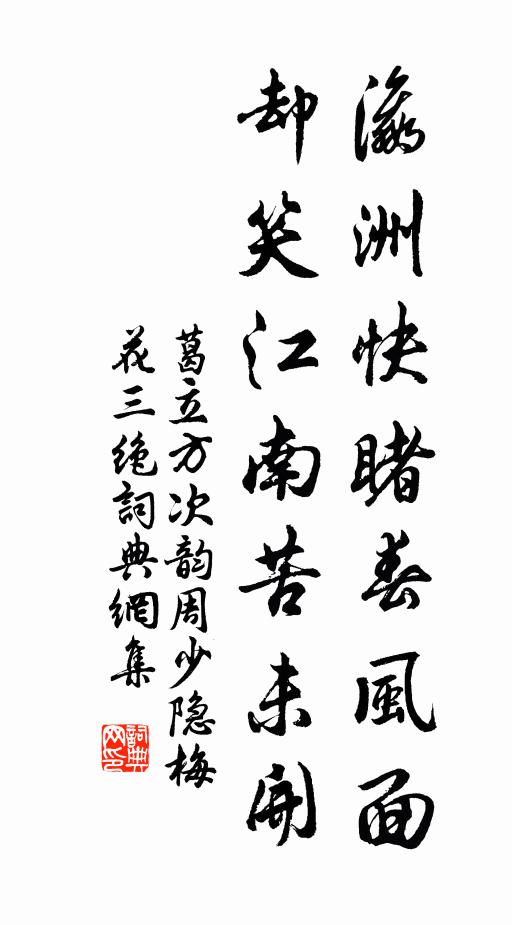 瀛洲快睹春風面
却笑江南苦未開
葛立方次韵周少隐梅
花三绝詞典網集
詞典
网印